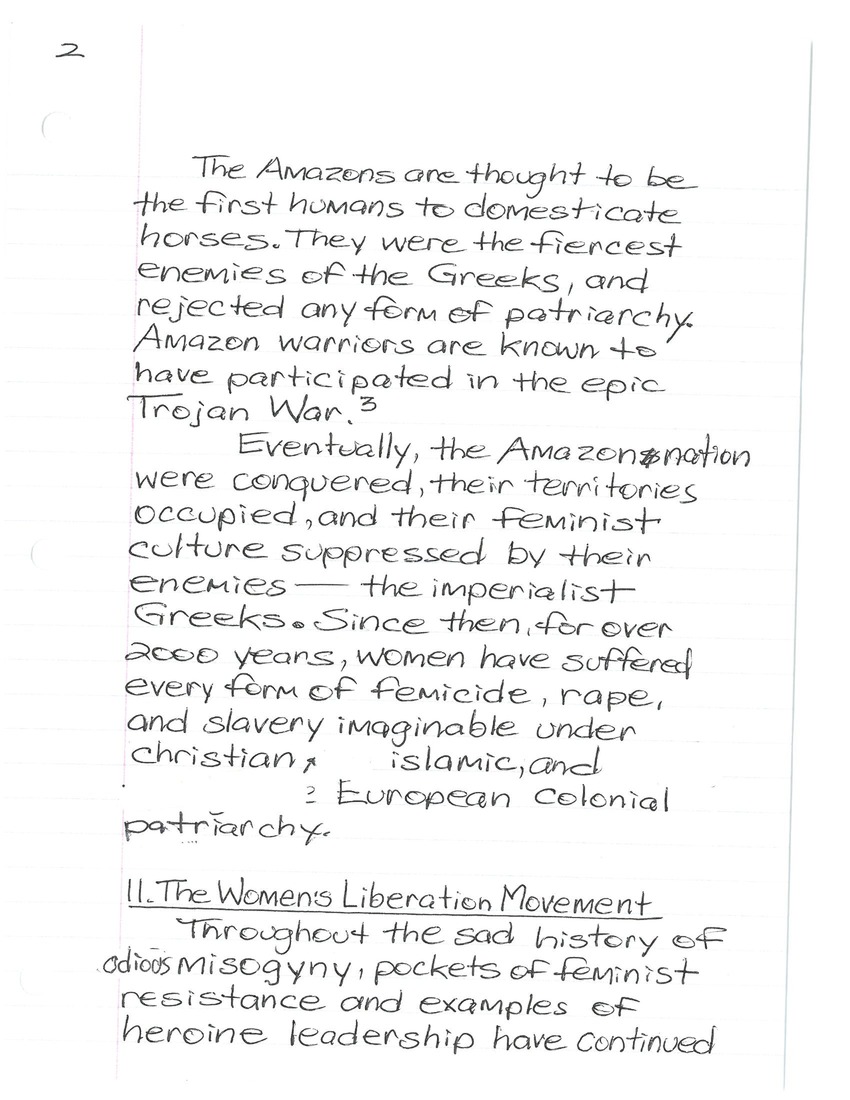 2
The Amazons are thought to be
the first humans to domesticate
horses. They were the fiercest
enemies of the Greeks, and
rejected any form of patriarchy.
Amazon warriors are known to
have participated in the epic
Trojan War.³
Eventually, the Amazon nation
were conquered, their territories
occupied, and their feminist
culture suppressed by their
enemies — the imperialist
Greeks. Since then, for over
2000 years, women have suffered
every form of femicide, rape,
and slavery imaginable under
christian, islamic, and
European colonial
patriarchy.
II. The Women's Liberation Movement
Throughout the sad history of
odious misogyny, pockets of feminist
resistance and examples of
heroine leadership have continued